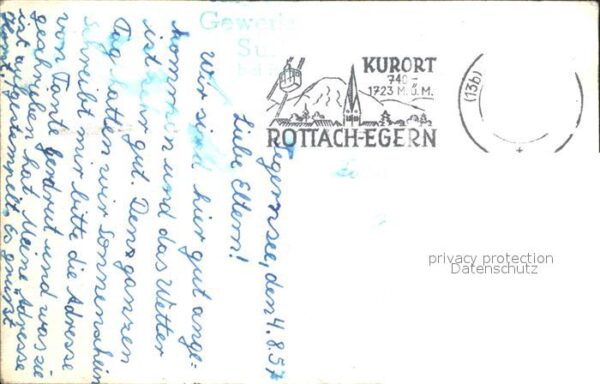 Gewerk
Su
KURORT
740-
1723 M.Ü.M.
ROTTACH-EGERN
(13b)
Tegernsee, den 4.8.57
Liebe Eltern!
Wir sind hier gut ange-
kommen und das Wetter
ist sehr gut. Den ganzen
Tag hatten wir Sonnenschein
Schreibt mir bitte die Adresse
von Tante Gerdrut und was sie
geschrieben hat. Meine Adresse
ist aufgestempelt. Es grüsst
Horst
privacy protection
Datenschutz